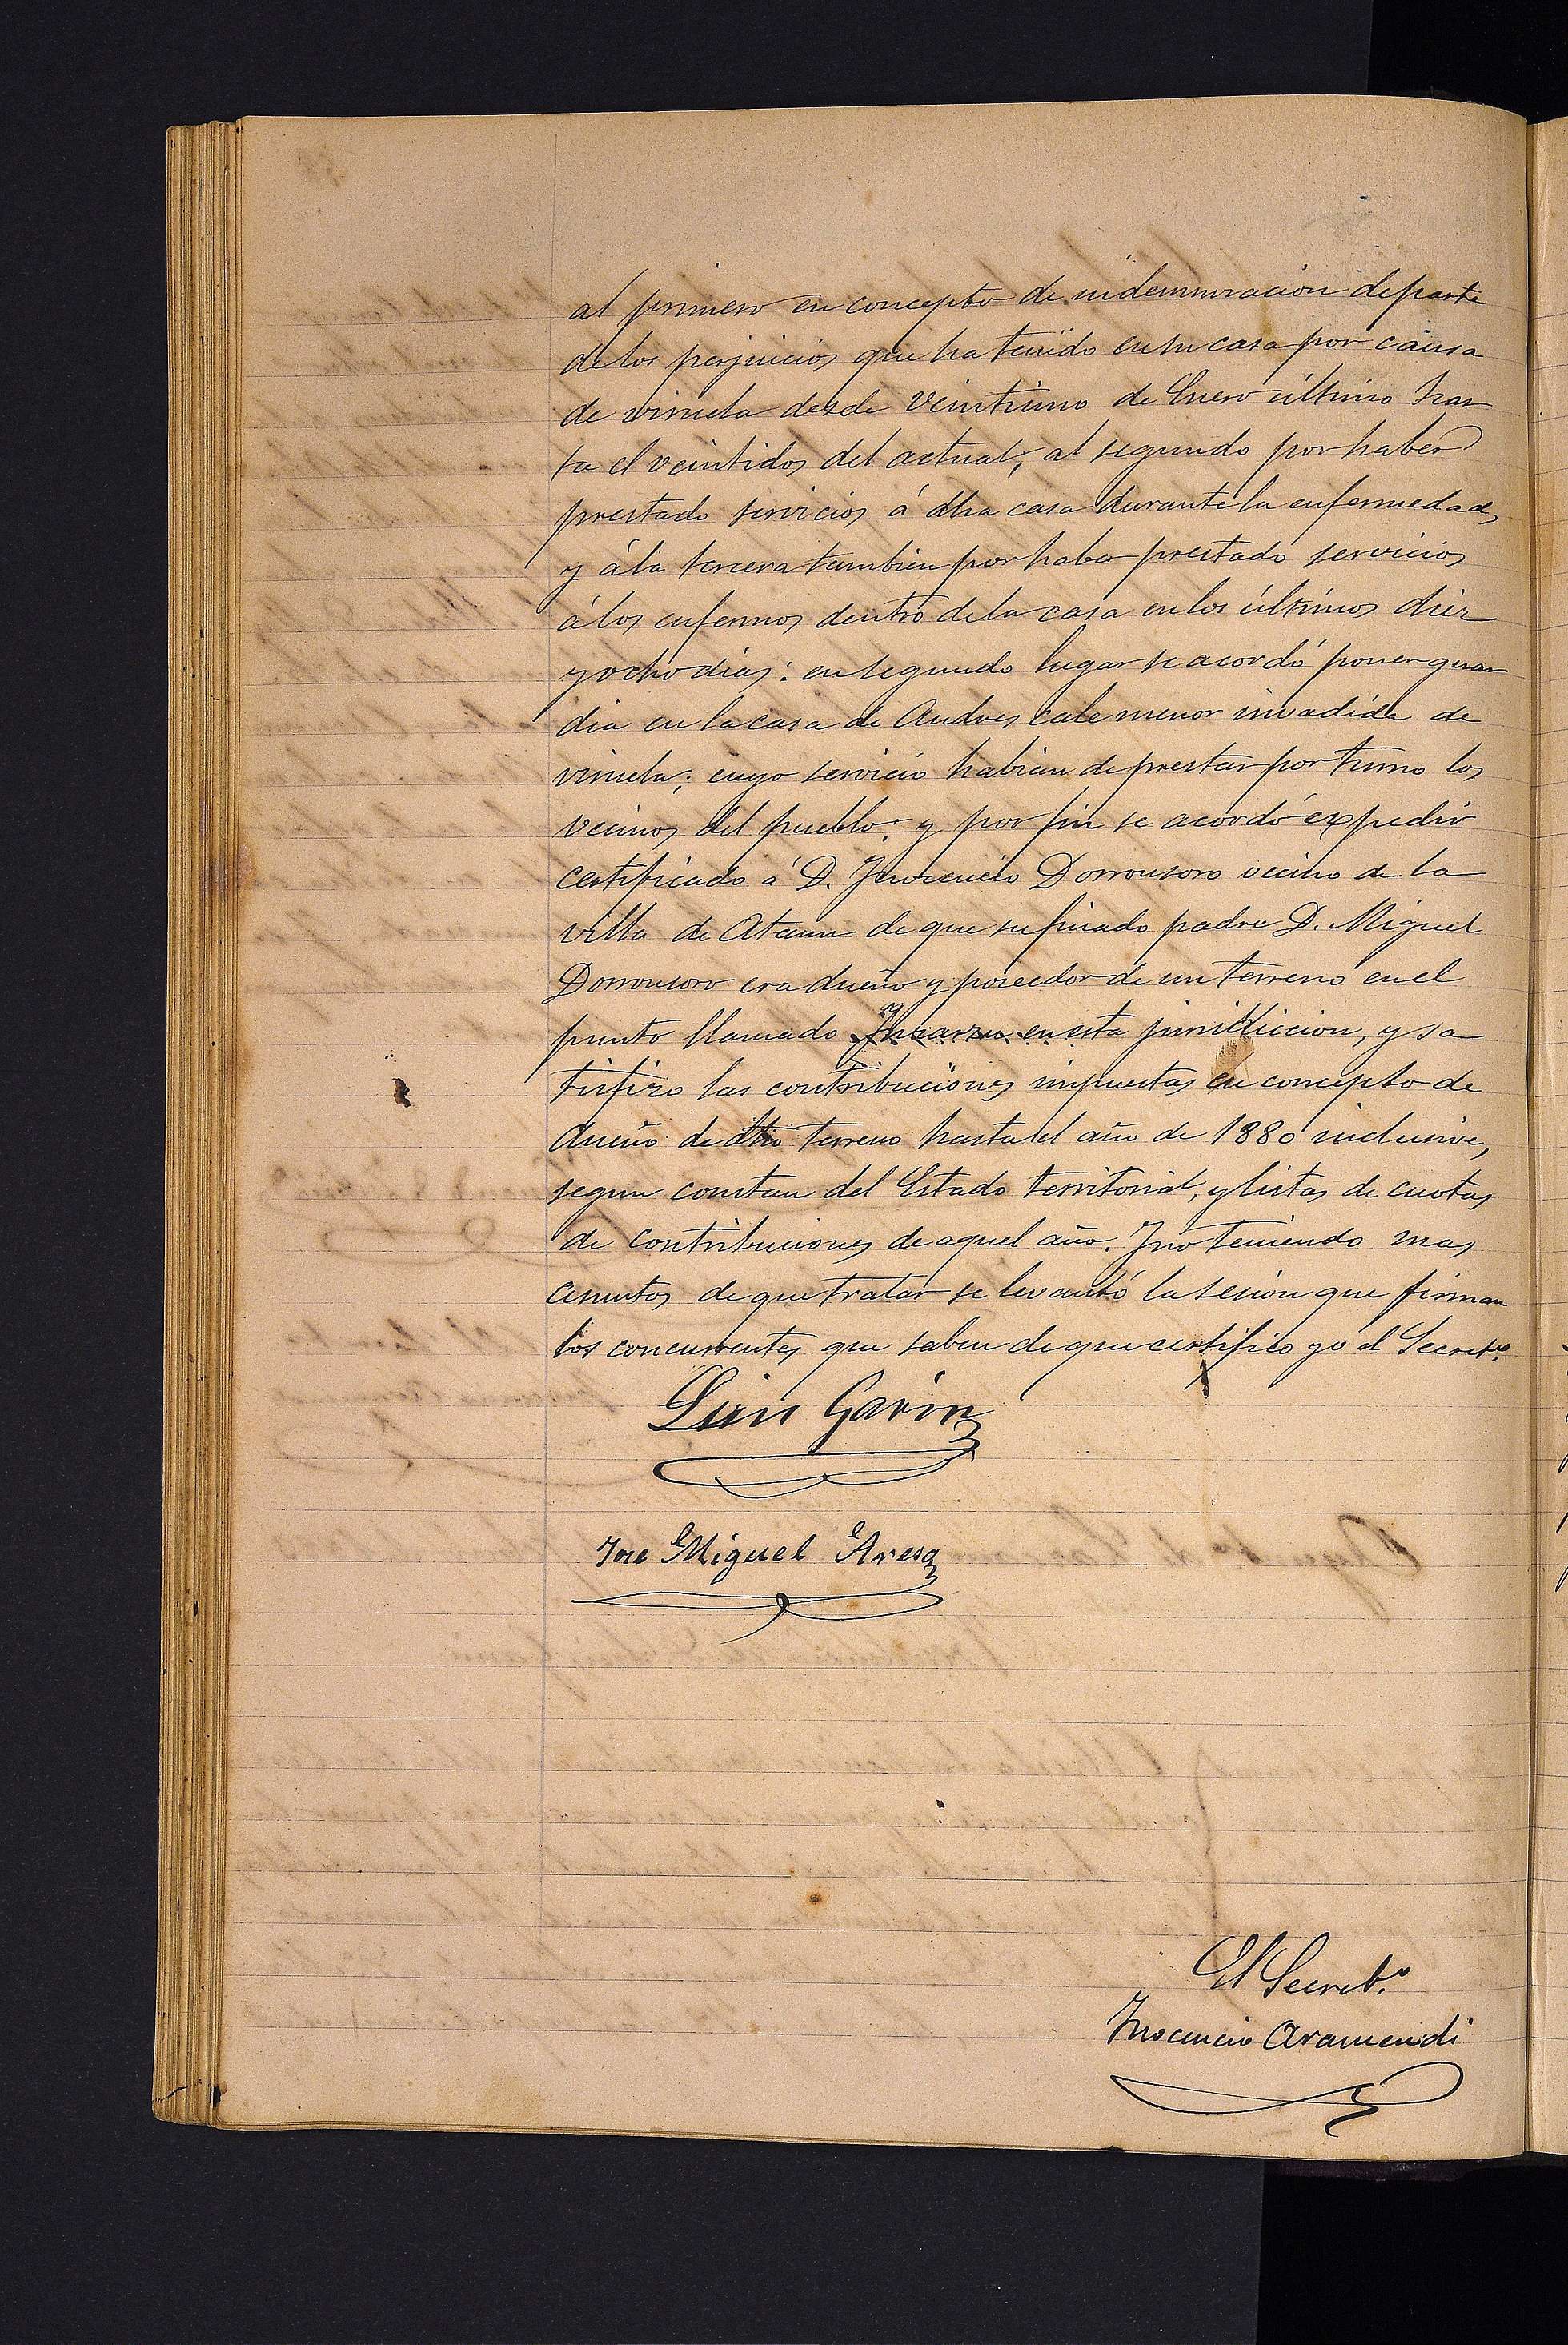 al primero en concepto de indemnización de parte
de los perjuicios que ha tenido en su casa por causa
de viruela desde veintiuno de Enero último has
ta el veintidos del actual; al segundo por haber
prestado servicios á dha casa durante la enfermedad,
y á la tercera tambien por haber prestado servicios
á los enfermos dentro de la casa en los últimos diez
y ocho dias: en segundo lugar se acordó poner guar
dia en la casa de Andres calle menor invadida de
viruela; cuyo servicio habian de prestar por turno los
vecinos del pueblo: y por fin se acordó expedir
certificado á D. Inocencio Dorronsoro vecino de la
villa de Ataun de que su finado padre D. Miguel
Dorronsoro era dueño y poseedor de un terreno en el
punto llamado en esta jurisdiccion, y sa
tisfizo las contribuciones impuestas en concepto de
dueño de dho terreno hasta el año de 1880 inclusive,
segun constan del Estado territorial, y listas de cuotas
de contribuciones de aquel año. Y no teniendo mas
asuntos de que tratar se levantó la sesion que firman
los concurrentes que saben de que certifico yo el Secretº
Luis Garin
Jose Miguel Aresa
El Secretº
Inocencio Aramendi